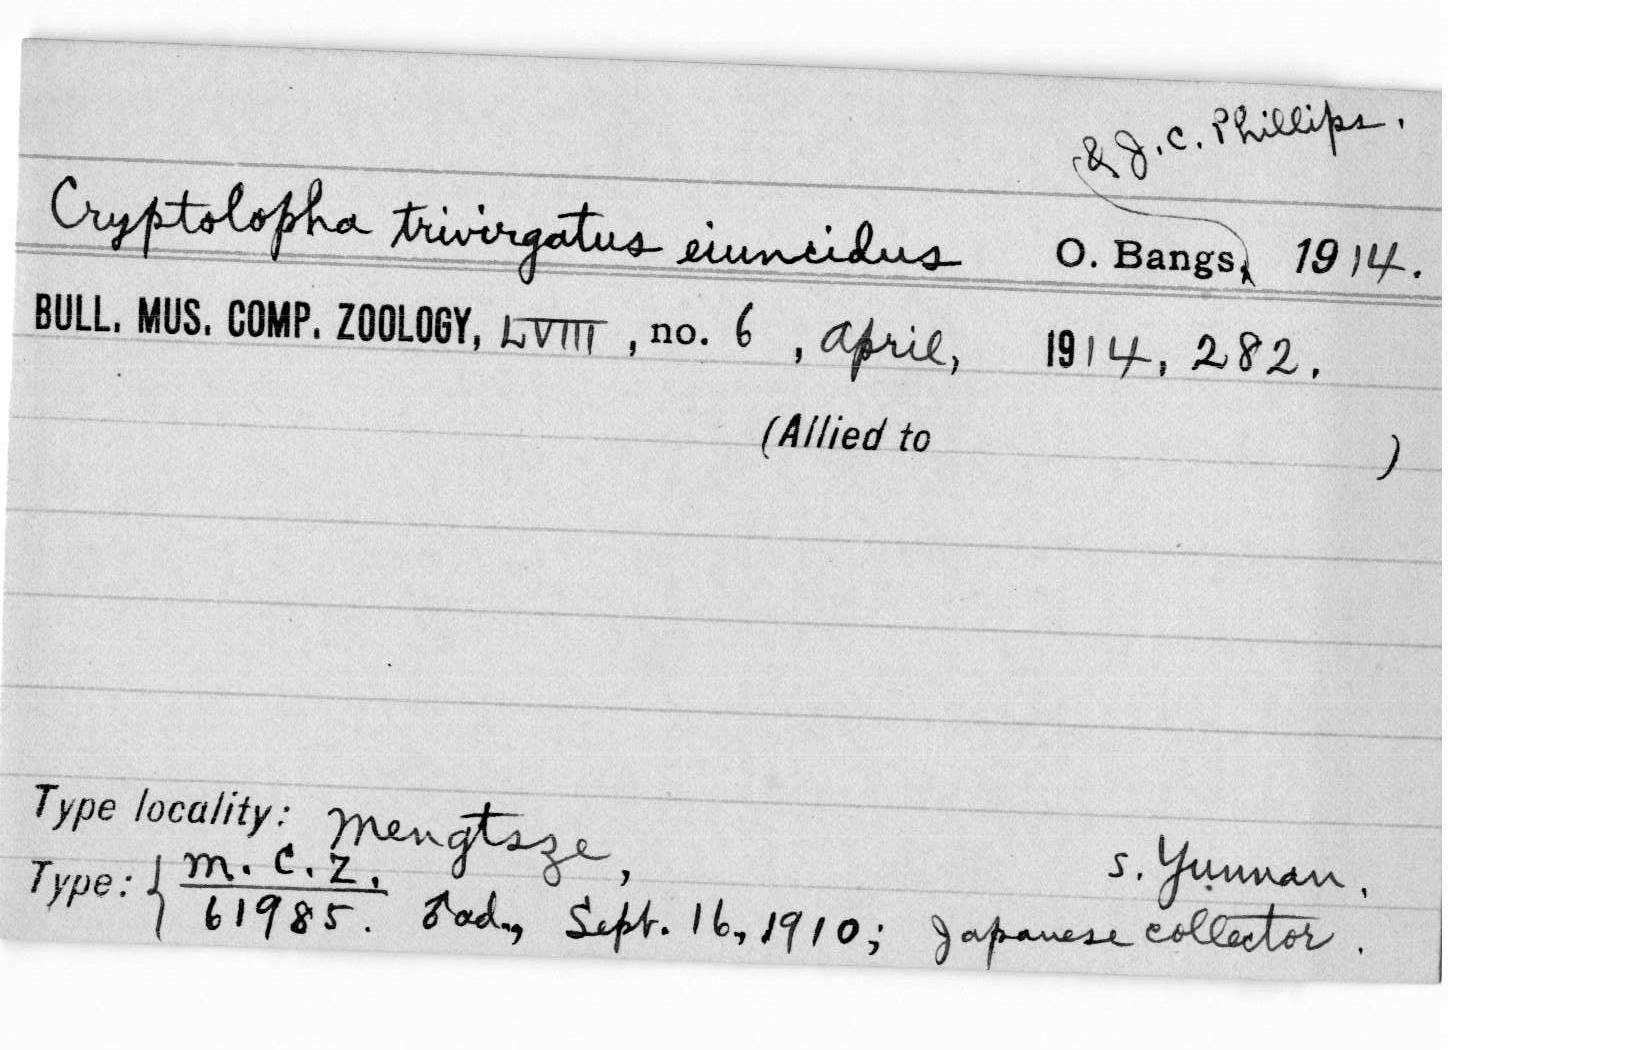 & J. C. Phillips.
Cryptolopha trivirgatus eiuncidus O. Bangs, 1914.
BULL. MUS. COMP. ZOOLOGY, LVIII, no. 6, April, 1914, 282.
(Allied to )
Type locality: Mengtsze, S. Yunnan.
Type: { M. C. Z. 61985. ♂ ad., Sept. 16, 1910; Japanese collector.